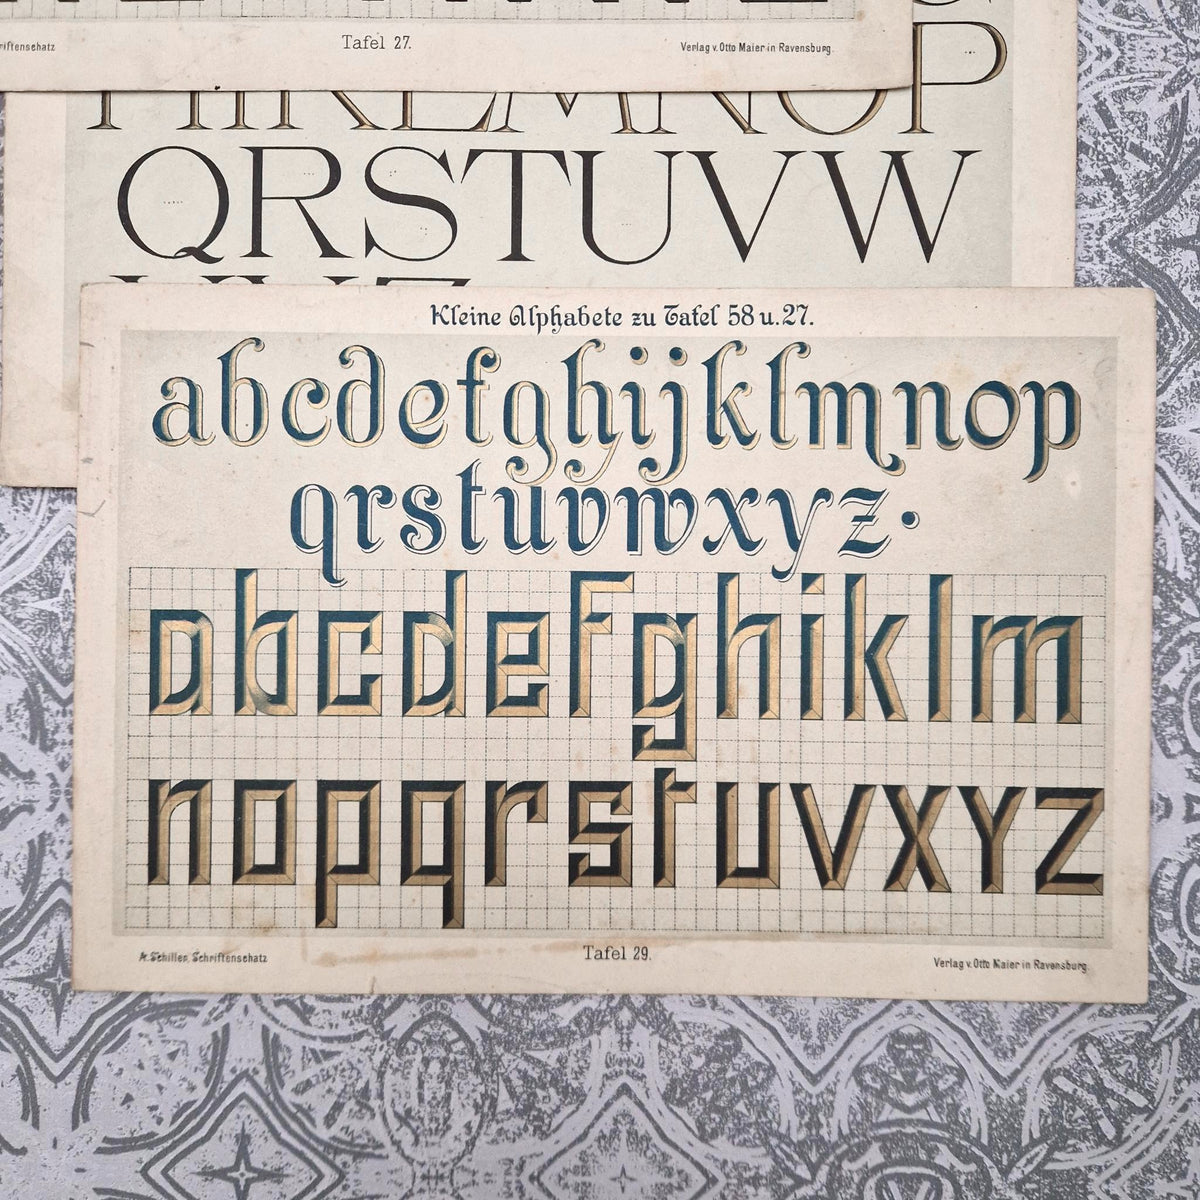 Tafel 27.
Verlag v. Otto Maier in Ravensburg.
HIKLMNOP
QRSTUVW
Kleine Alphabete zu Tafel 58 u. 27.
abcdefghijklmnop
qrstuvwxyz.
abcdefghiklm
nopqrstuvxyz
A. Schiller, Schriftenschatz
Tafel 29.
Verlag v. Otto Maier in Ravensburg.